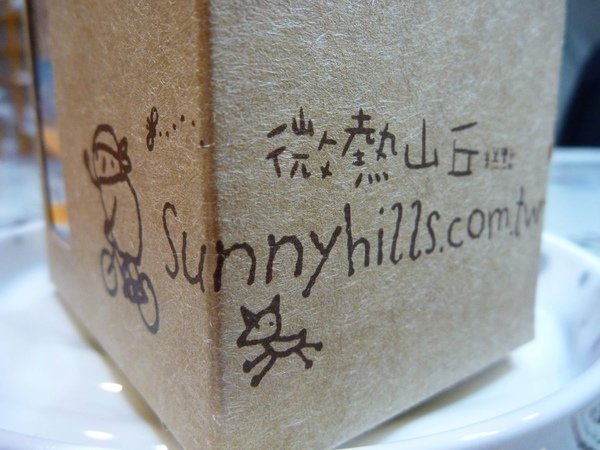 微熱山丘
Sunnyhills.com.tw